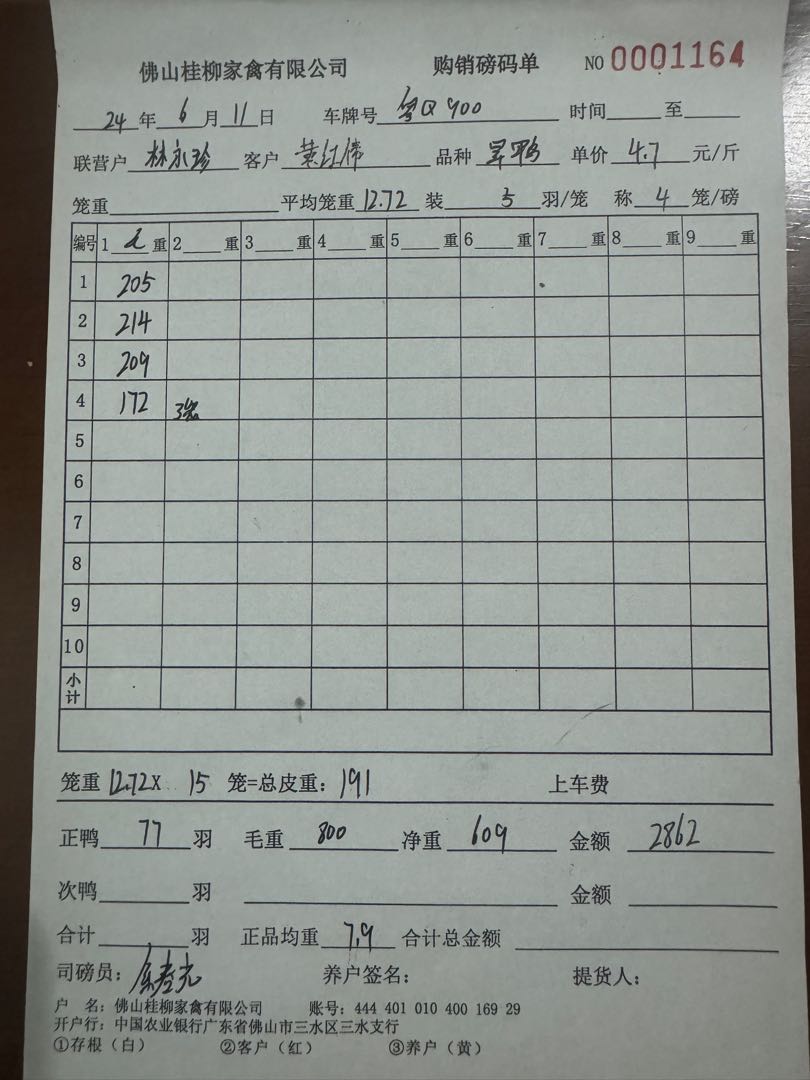 佛山桂柳家禽有限公司 购销磅码单 NO 0001164
24 年 6 月 11 日 车牌号 粤Q 900 时间 至
联营户 林永珍 客户 黄红伟 品种 旱鸭 单价 4.7 元/斤
笼重 平均笼重 12.72 装 5 羽/笼 称 4 笼/磅
编号 1 重 2 重 3 重 4 重 5 重 6 重 7 重 8 重 9 重
1 205
2 214
3 209
4 172 3笼
5
6
7
8
9
10
小计
笼重 12.72X 15 笼=总皮重: 191 上车费
正鸭 77 羽 毛重 800 净重 609 金额 2862
次鸭 羽 金额
合计 羽 正品均重 7.9 合计总金额
司磅员: 养户签名: 提货人:
户 名: 佛山桂柳家禽有限公司 账号: 444 401 010 400 169 29
开户行: 中国农业银行广东省佛山市三水区三水支行
①存根（白） ②客户（红） ③养户（黄）